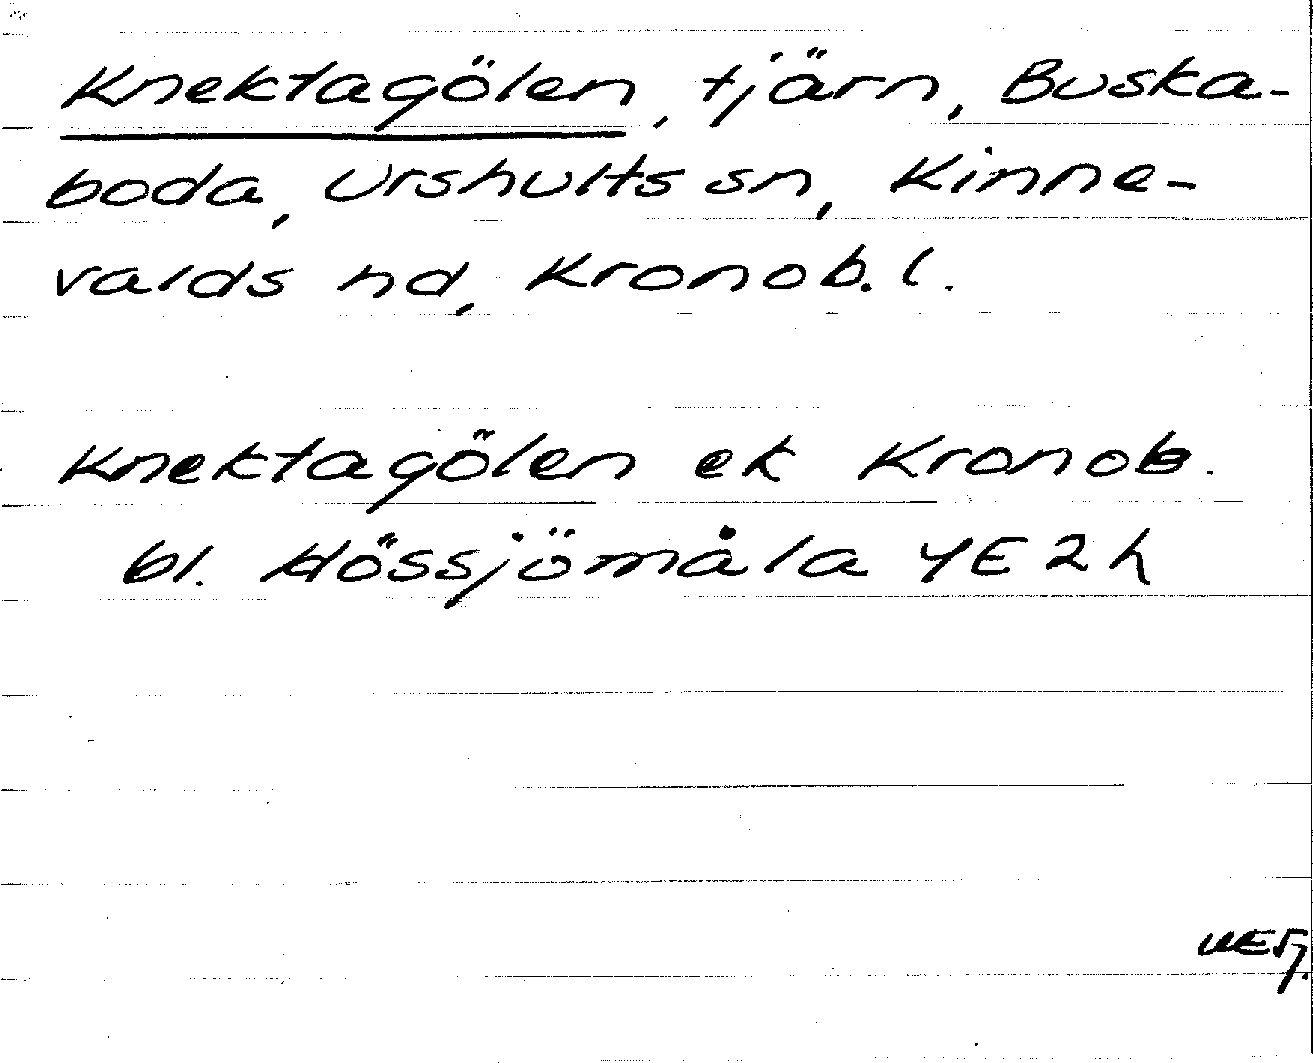 Knektagölen, tjärn, Buska-
boda, Urshults sn, Kinne-
valds hd, Kronob. l.
Knektagölen ek Kronob.
bl. Hössjömåla 4E2h